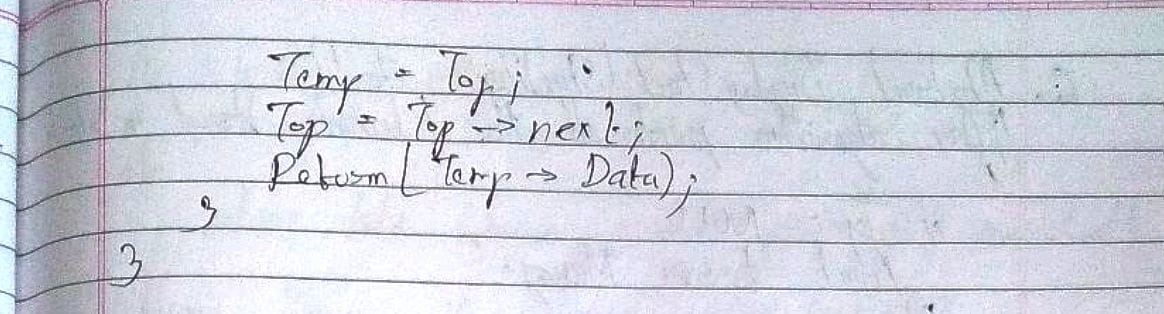 Temp = Top;
Top = Top -> next;
Return(Temp -> Data);
}
}